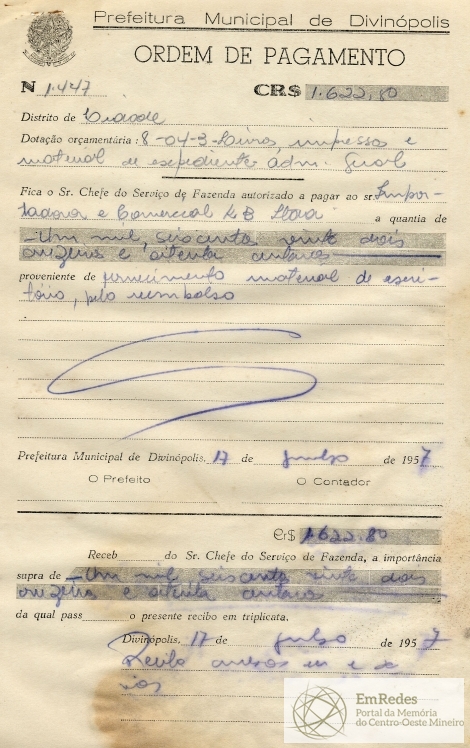 Prefeitura Municipal de Divinópolis
ORDEM DE PAGAMENTO
N 1.447 CR$ 1.622,80
Distrito de Cidade
Dotação orçamentária: 8-04-3-Livros, impressos e
material de expediente adm. Geral
Fica o Sr. Chefe do Serviço de Fazenda autorizado a pagar ao sr. Impor-
tadora e Comercial a quantia de
Um mil, seiscentos vinte dois
cruzeiros e oitenta centavos
proveniente de fornecimento material de escri-
tório, pelo reembolso
Prefeitura Municipal de Divinópolis, 17 de julho de 1957
O Prefeito O Contador
Cr$ 1.622,80
Receb do Sr. Chefe do Serviço de Fazenda, a importância
supra de Um mil seiscentos vinte dois
cruzeiros e oitenta centavos
da qual pass o presente recibo em triplicata.
Divinópolis, 17 de julho de 1957
Recibo
EmRedes
Portal da Memória
do Centro-Oeste Mineiro